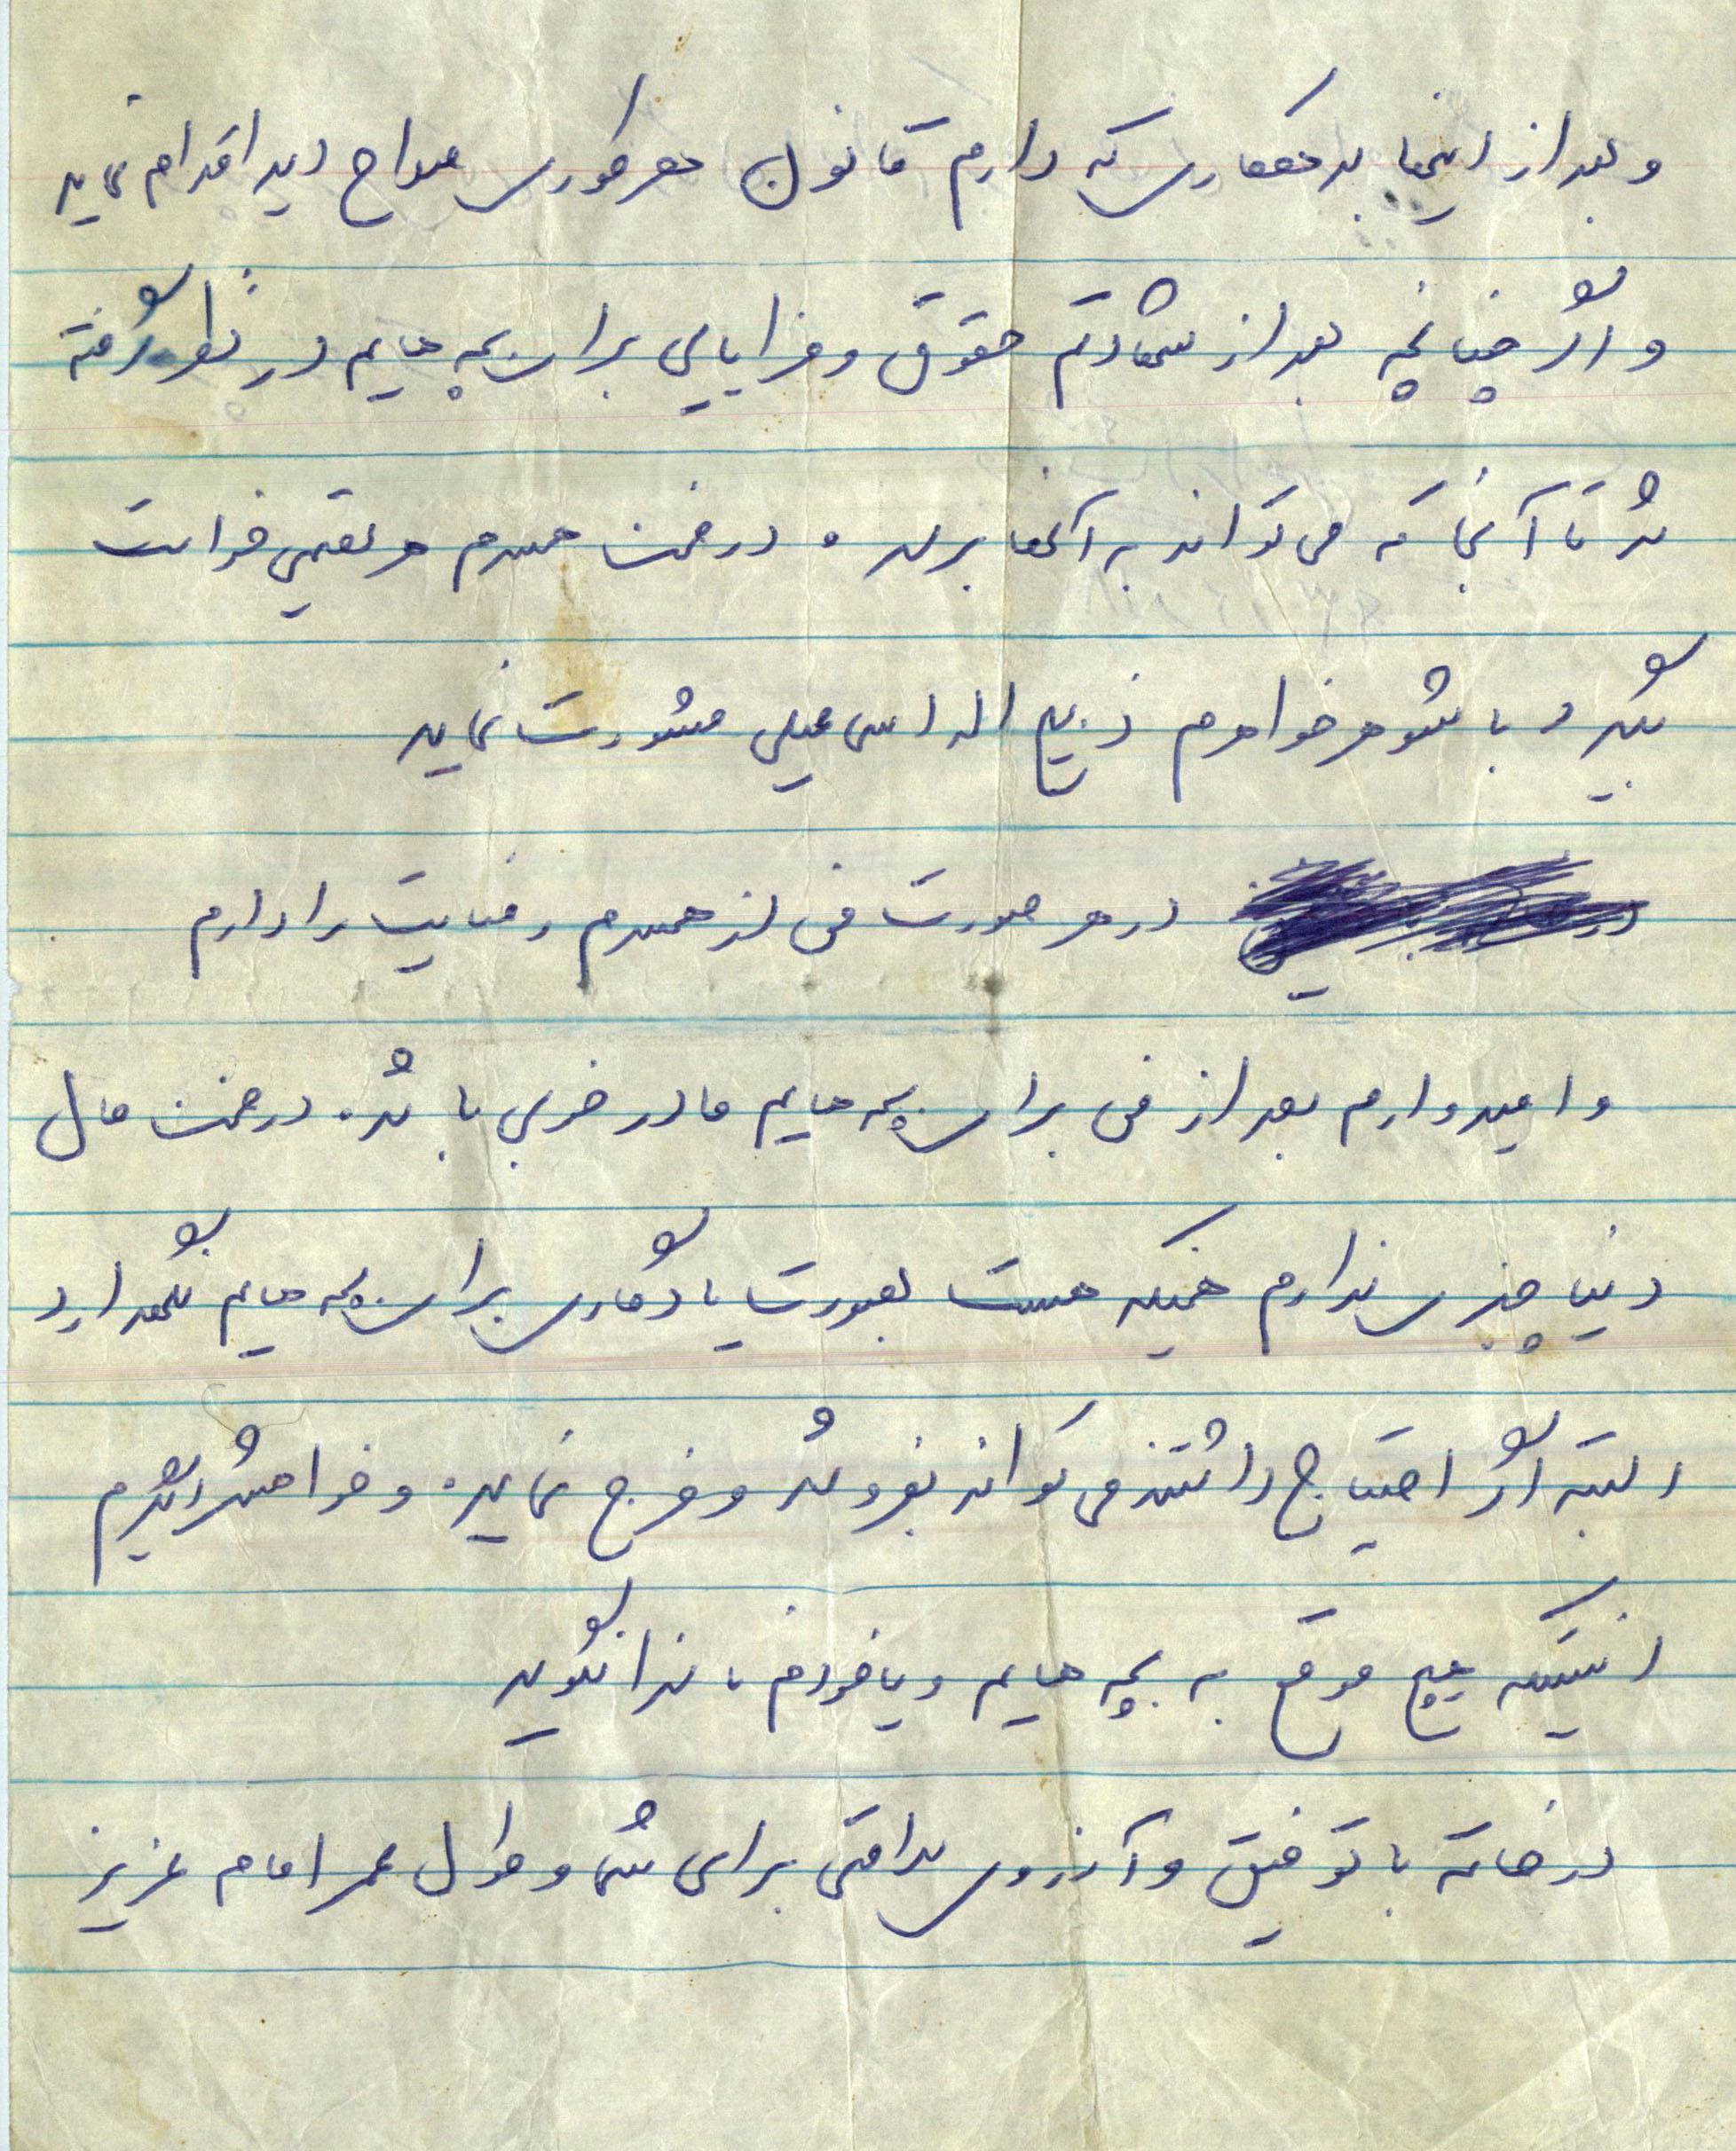 و بعد از اینها بدهکاری که دارم قانون هر طوری صلاح دید اقدام نماید
و اگر چنانچه بعد از شهادتم حقوق و مزایایی برای بچه هایم در نظر گرفته
شد تا آنجا که می تواند به آنها برسد. در ضمن همسرم هر تصمیمی خواست
بگیرد با شوهر خواهرم ذبیح اله اسماعیلی مشورت نماید
در هر صورت من از همسرم رضایت را دارم
و امیدوارم بعد از من برای بچه هایم مادر خوبی باشد. در ضمن مال
دنیا چیزی ندارم همینکه هست بصورت یادگاری برای بچه هایم نگهدارید
البته اگر احتیاج داشتند می تواند بفروشد و خرج نماید. و خواهش دیگرم
اینستکه هیچ موقع به بچه هایم و یا خودم ناسزا نگوید
در خاتمه با توفیق و آرزوی سلامتی برای شما و طول عمر امام عزیز